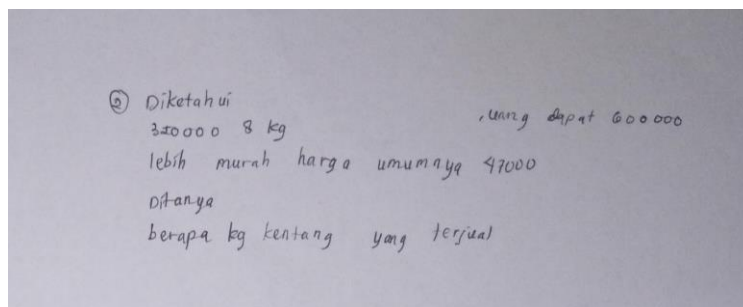 ② Diketahui
320000 8 kg , uang dapat 600000
lebih murah harga umumnya 47000
Ditanya
berapa kg kentang yang terjual